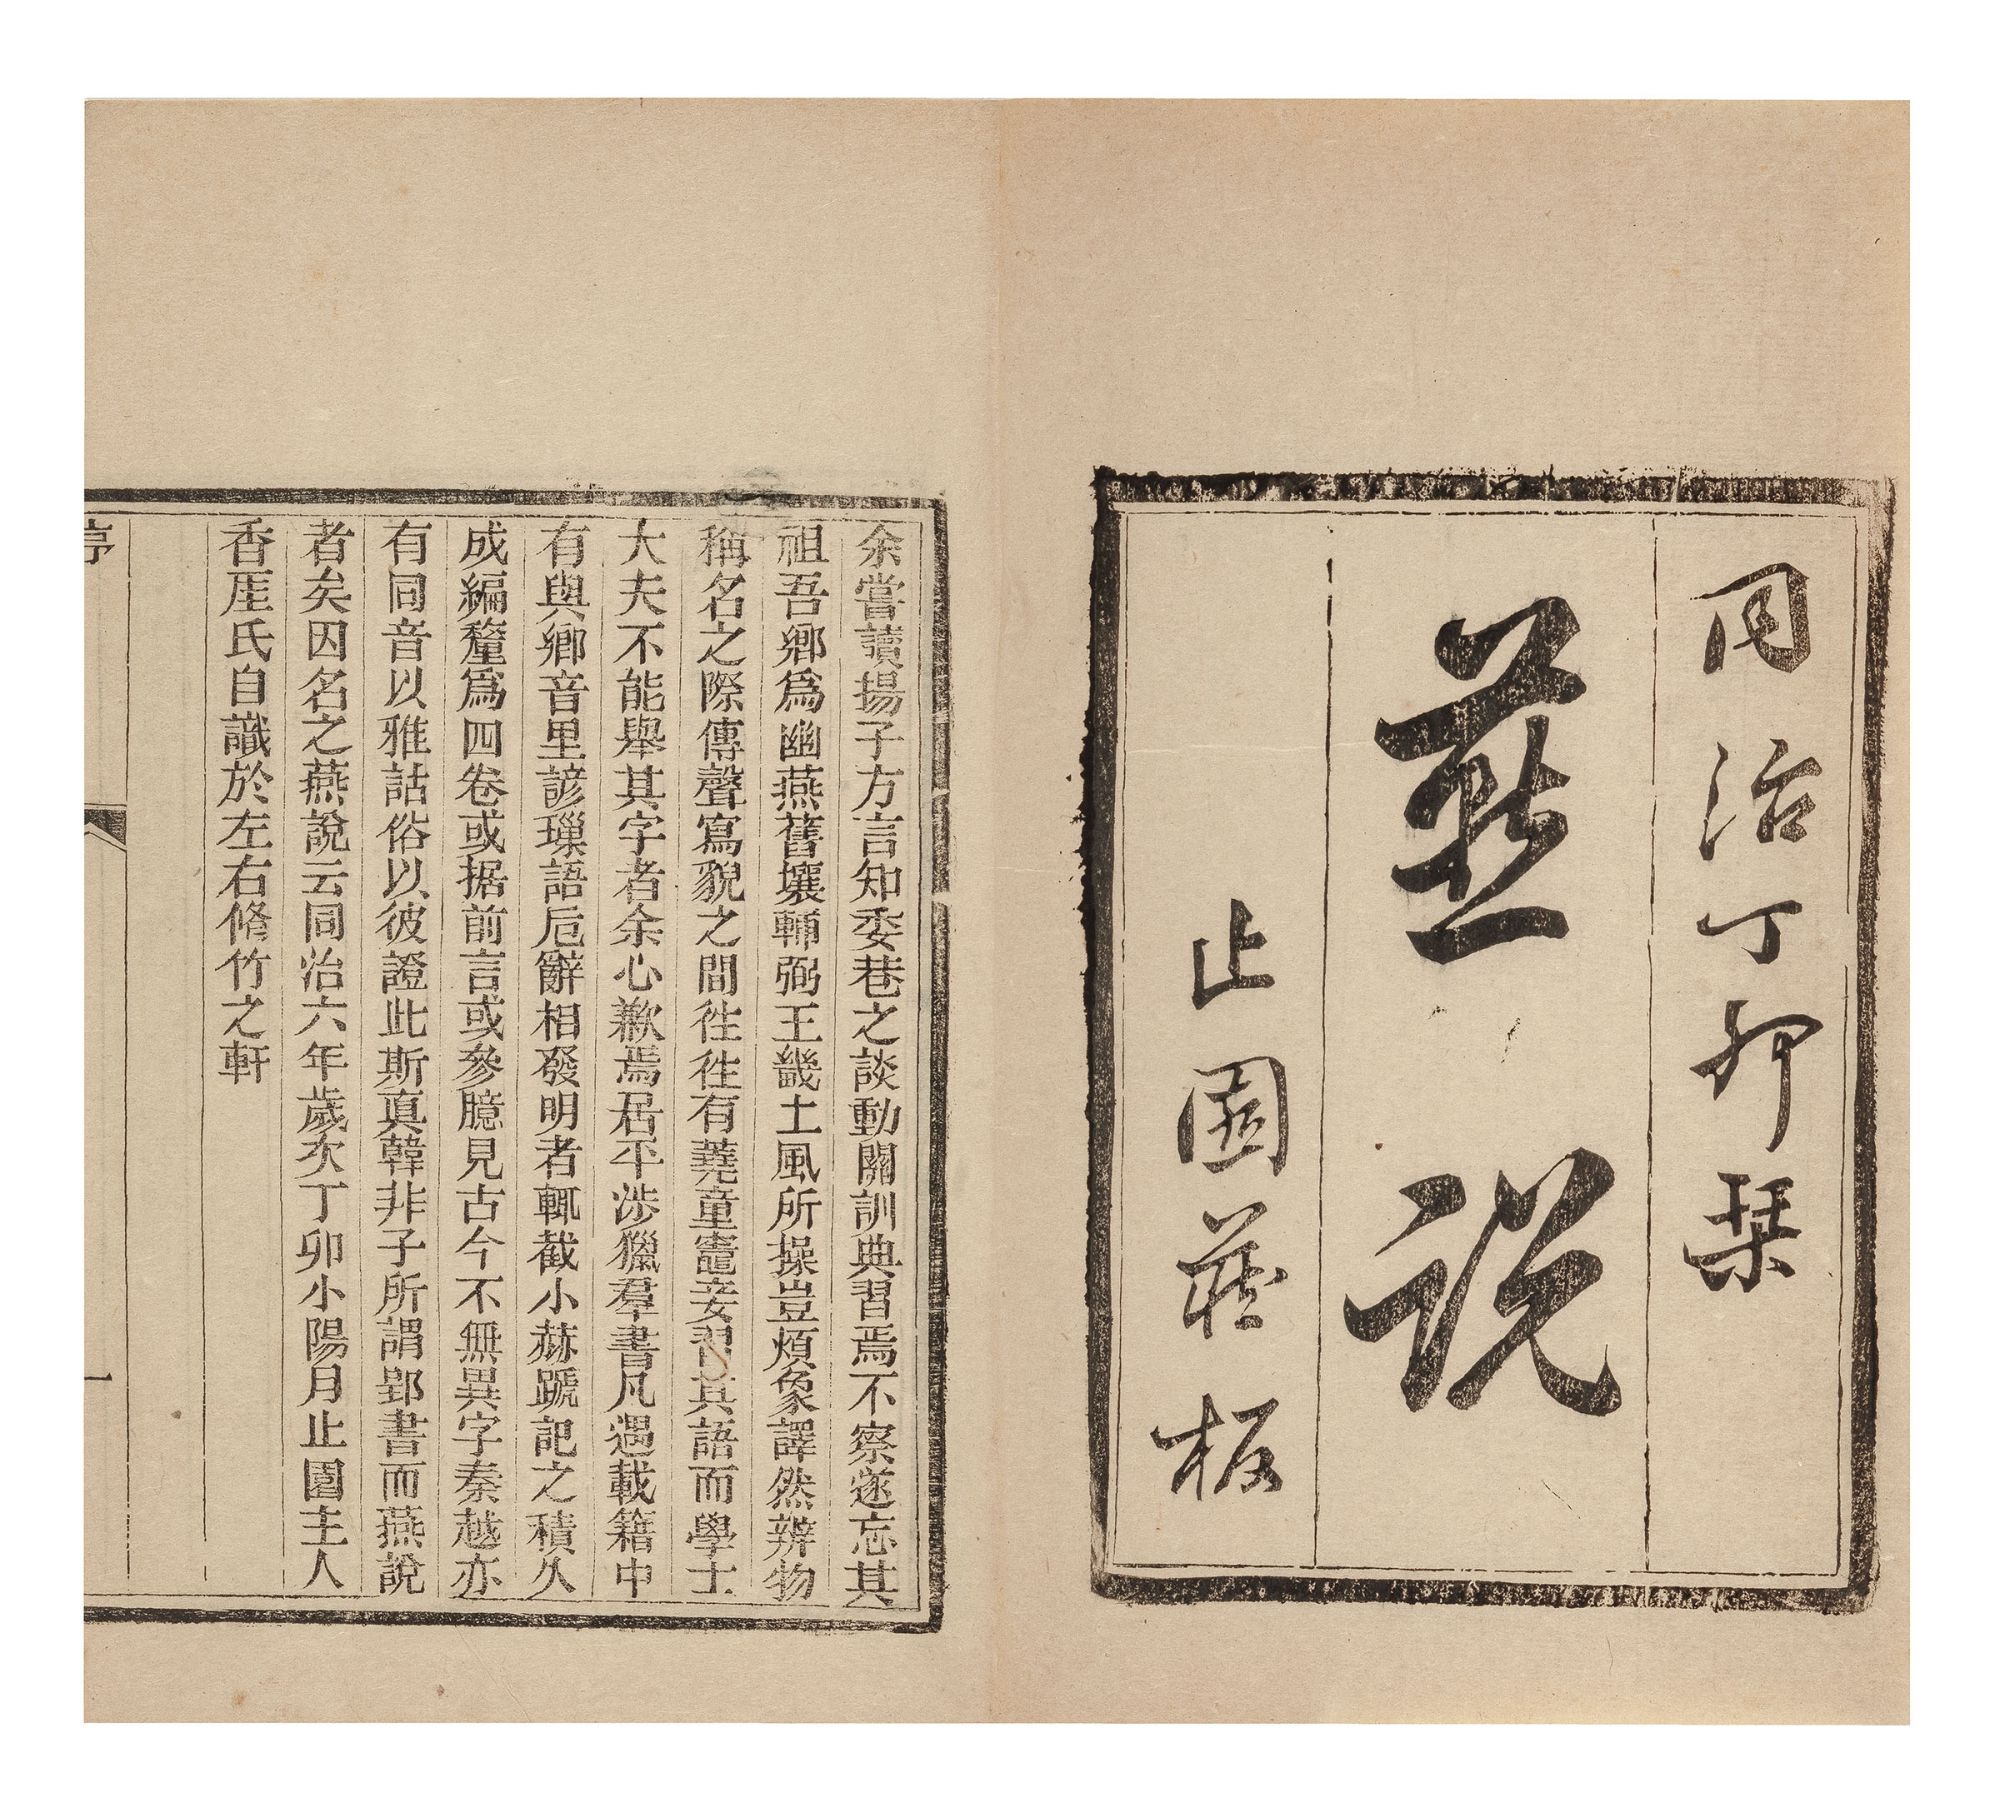 同治丁卯栞
燕說
止園藏板
余嘗讀揚子方言知委巷之談動關訓典習焉不察遂忘其
祖吾鄉爲幽燕舊壤輔弼王畿土風所操豈煩象譯然辨物
稱名之際傳聲寫貌之間徃徃有蕘童竈妾習其語而學士
大夫不能舉其字者余心歉焉居平涉獵羣書凡遇載籍中
有與鄉音里諺璅語巵辭相發明者輒截小赫蹏記之積久
成編釐爲四卷或据前言或參臆見古今不無異字秦越亦
有同音以雅詁俗以彼證此斯眞韓非子所謂郢書而燕說
者矣因名之燕說云同治六年歲次丁卯小陽月止園主人
香厓氏自識於左右脩竹之軒
一